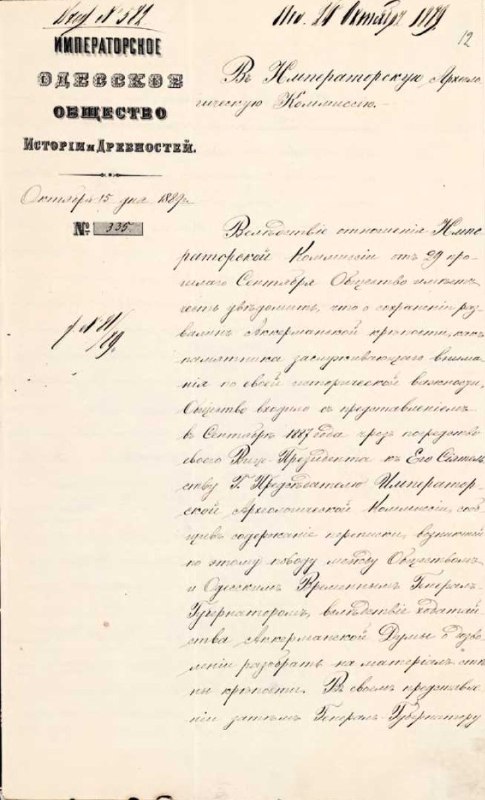 Вход. № 582
Исп. 21 Октября 1889
12
ИМПЕРАТОРСКОЕ
ОДЕССКОЕ
ОБЩЕСТВО
ИСТОРІИ и ДРЕВНОСТЕЙ.
Октября 15 дня 1889 г.
№ 335
Въ Императорскую Археоло-
гическую Коммиссію.
Вслѣдствіе отношенія Импе-
раторской Коммисіи отъ 29 про-
шлаго Сентября Общество имѣетъ
честь увѣдомить, что о сохраненіи раз-
валинъ Аккерманской крѣпости, какъ
памятника заслуживающаго внима-
нія по своей исторической важности,
Общество входило съ представленіемъ
въ Сентябрѣ 1887 года чрез посредство
своего Вице-Президента къ Его Сіятель-
ству Г. Предсѣдателю Император-
ской Археологической Коммисіи, соб-
щивъ содержаніе переписки, возникшей
по этому поводу между Обществомъ
и Одесскимъ Временнымъ Генералъ-
Губернаторомъ, вслѣдствіе ходатай-
ства Аккерманской Думы о дозво-
леніи разобрать на матеріалъ стѣ-
ны крѣпости. Въ своемъ представле-
ніи затѣмъ Генералъ Губернатору